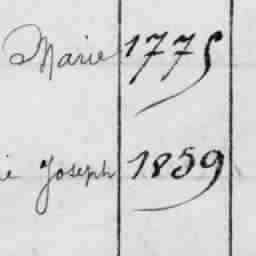 Marie 1775
ie Joseph 1859